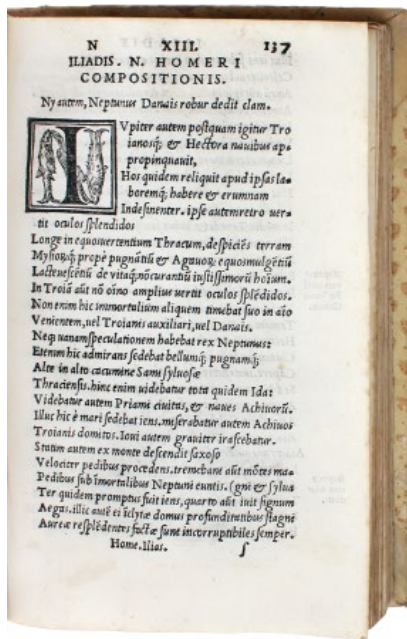 N XIII. 137
ILIADIS. N. HOMERI
COMPOSITIONIS.
Ny autem, Neptunus Danais robur dedit clam.
IVpiter autem postquam igitur Tro
ianosq; & Hectora nauibus ap-
propinquauit,
Hos quidem reliquit apud ipsas la-
boremq; habere & erumnam
Indesinenter. ipse autem retro uer-
tit oculos splendidos
Longe in equouertentium Thracum, despiciẽs terram
Mysorũq; propẽ pugnãtiũ & Agauorũ equosmulgẽtiũ
Lacteuescẽtiũ de vitaq; nõ curantiũ iustissimorũ hoĩum.
In Troiã aũt nõ oĩno amplius vertit oculos splẽdidos.
Non enim hic immortalium aliquem timebat suo in aĩo
Venientem, uel Troianis auxiliari, uel Danais.
Neq; uanam speculationem habebat rex Neptunus:
Etenim hic admirans sedebat bellumq; pugnamq;
Alte in alto cacumine Sami syluosæ
Thraciensis. hinc enim uidebatur tota quidem Ida:
Videbatur autem Priami ciuitas, & naues Achiuorũ.
Illuc hic è mari sedebat iens. miserabatur autem Achiuos
Troianis domitos. Ioui autem grauiter irascebatur.
Statim autem ex monte descendit saxoso
Velociter pedibus procedens. tremebant aũt mõtes ma-
Pedibus sub imortalibus Neptuni euntis. (gni & sylua
Ter quidem promptus fuit iens, quarto aũt iuit signum
Aegas. illic autẽ ei iclytæ domus profunditatibus stagni
Aureæ resplẽdentes factæ sunt incorruptibiles semper.
Home. Ilias. s